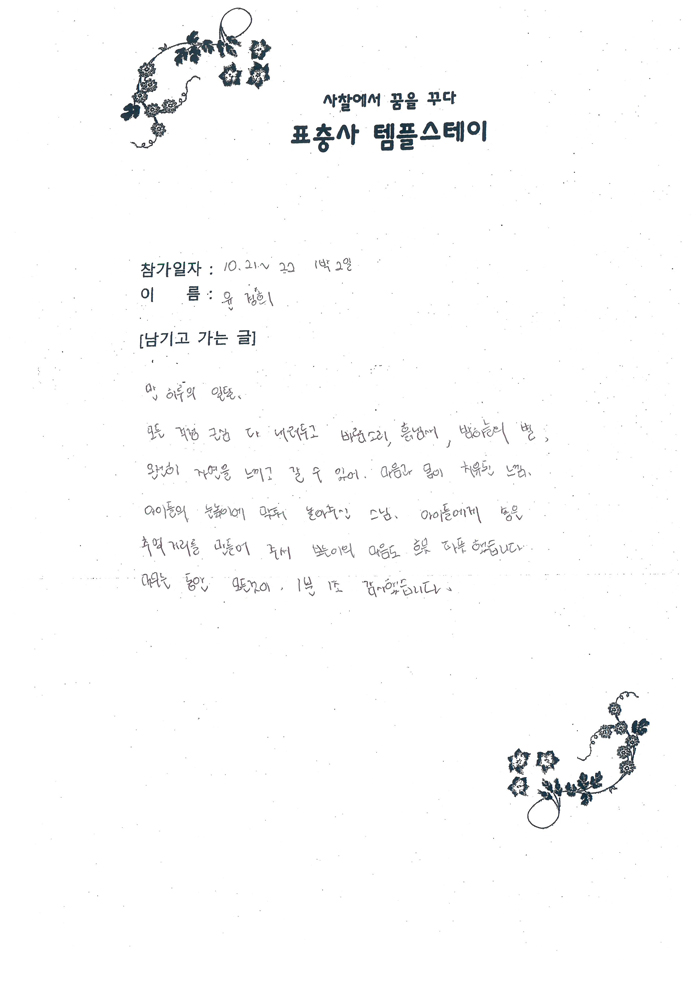 사찰에서 꿈을 꾸다
표충사 템플스테이
참가일자 : 10.21~ 22 1박 2일
이 름 : 윤 정희
[남기고 가는 글]
만 하루의 일탈.
모든 걱정 근심 다 내려두고 바람소리, 흙냄새, 밤하늘의 별,
온전히 자연을 느끼고 갈 수 있어. 마음과 몸이 치유된 느낌.
아이들의 눈높이에 맞춰 놀아주신 스님. 아이들에게 좋은
추억거리를 만들어 주셔 부모의 마음도 따뜻했습니다
머무는 동안 모든것이. 1분 1초 감사했습니다.